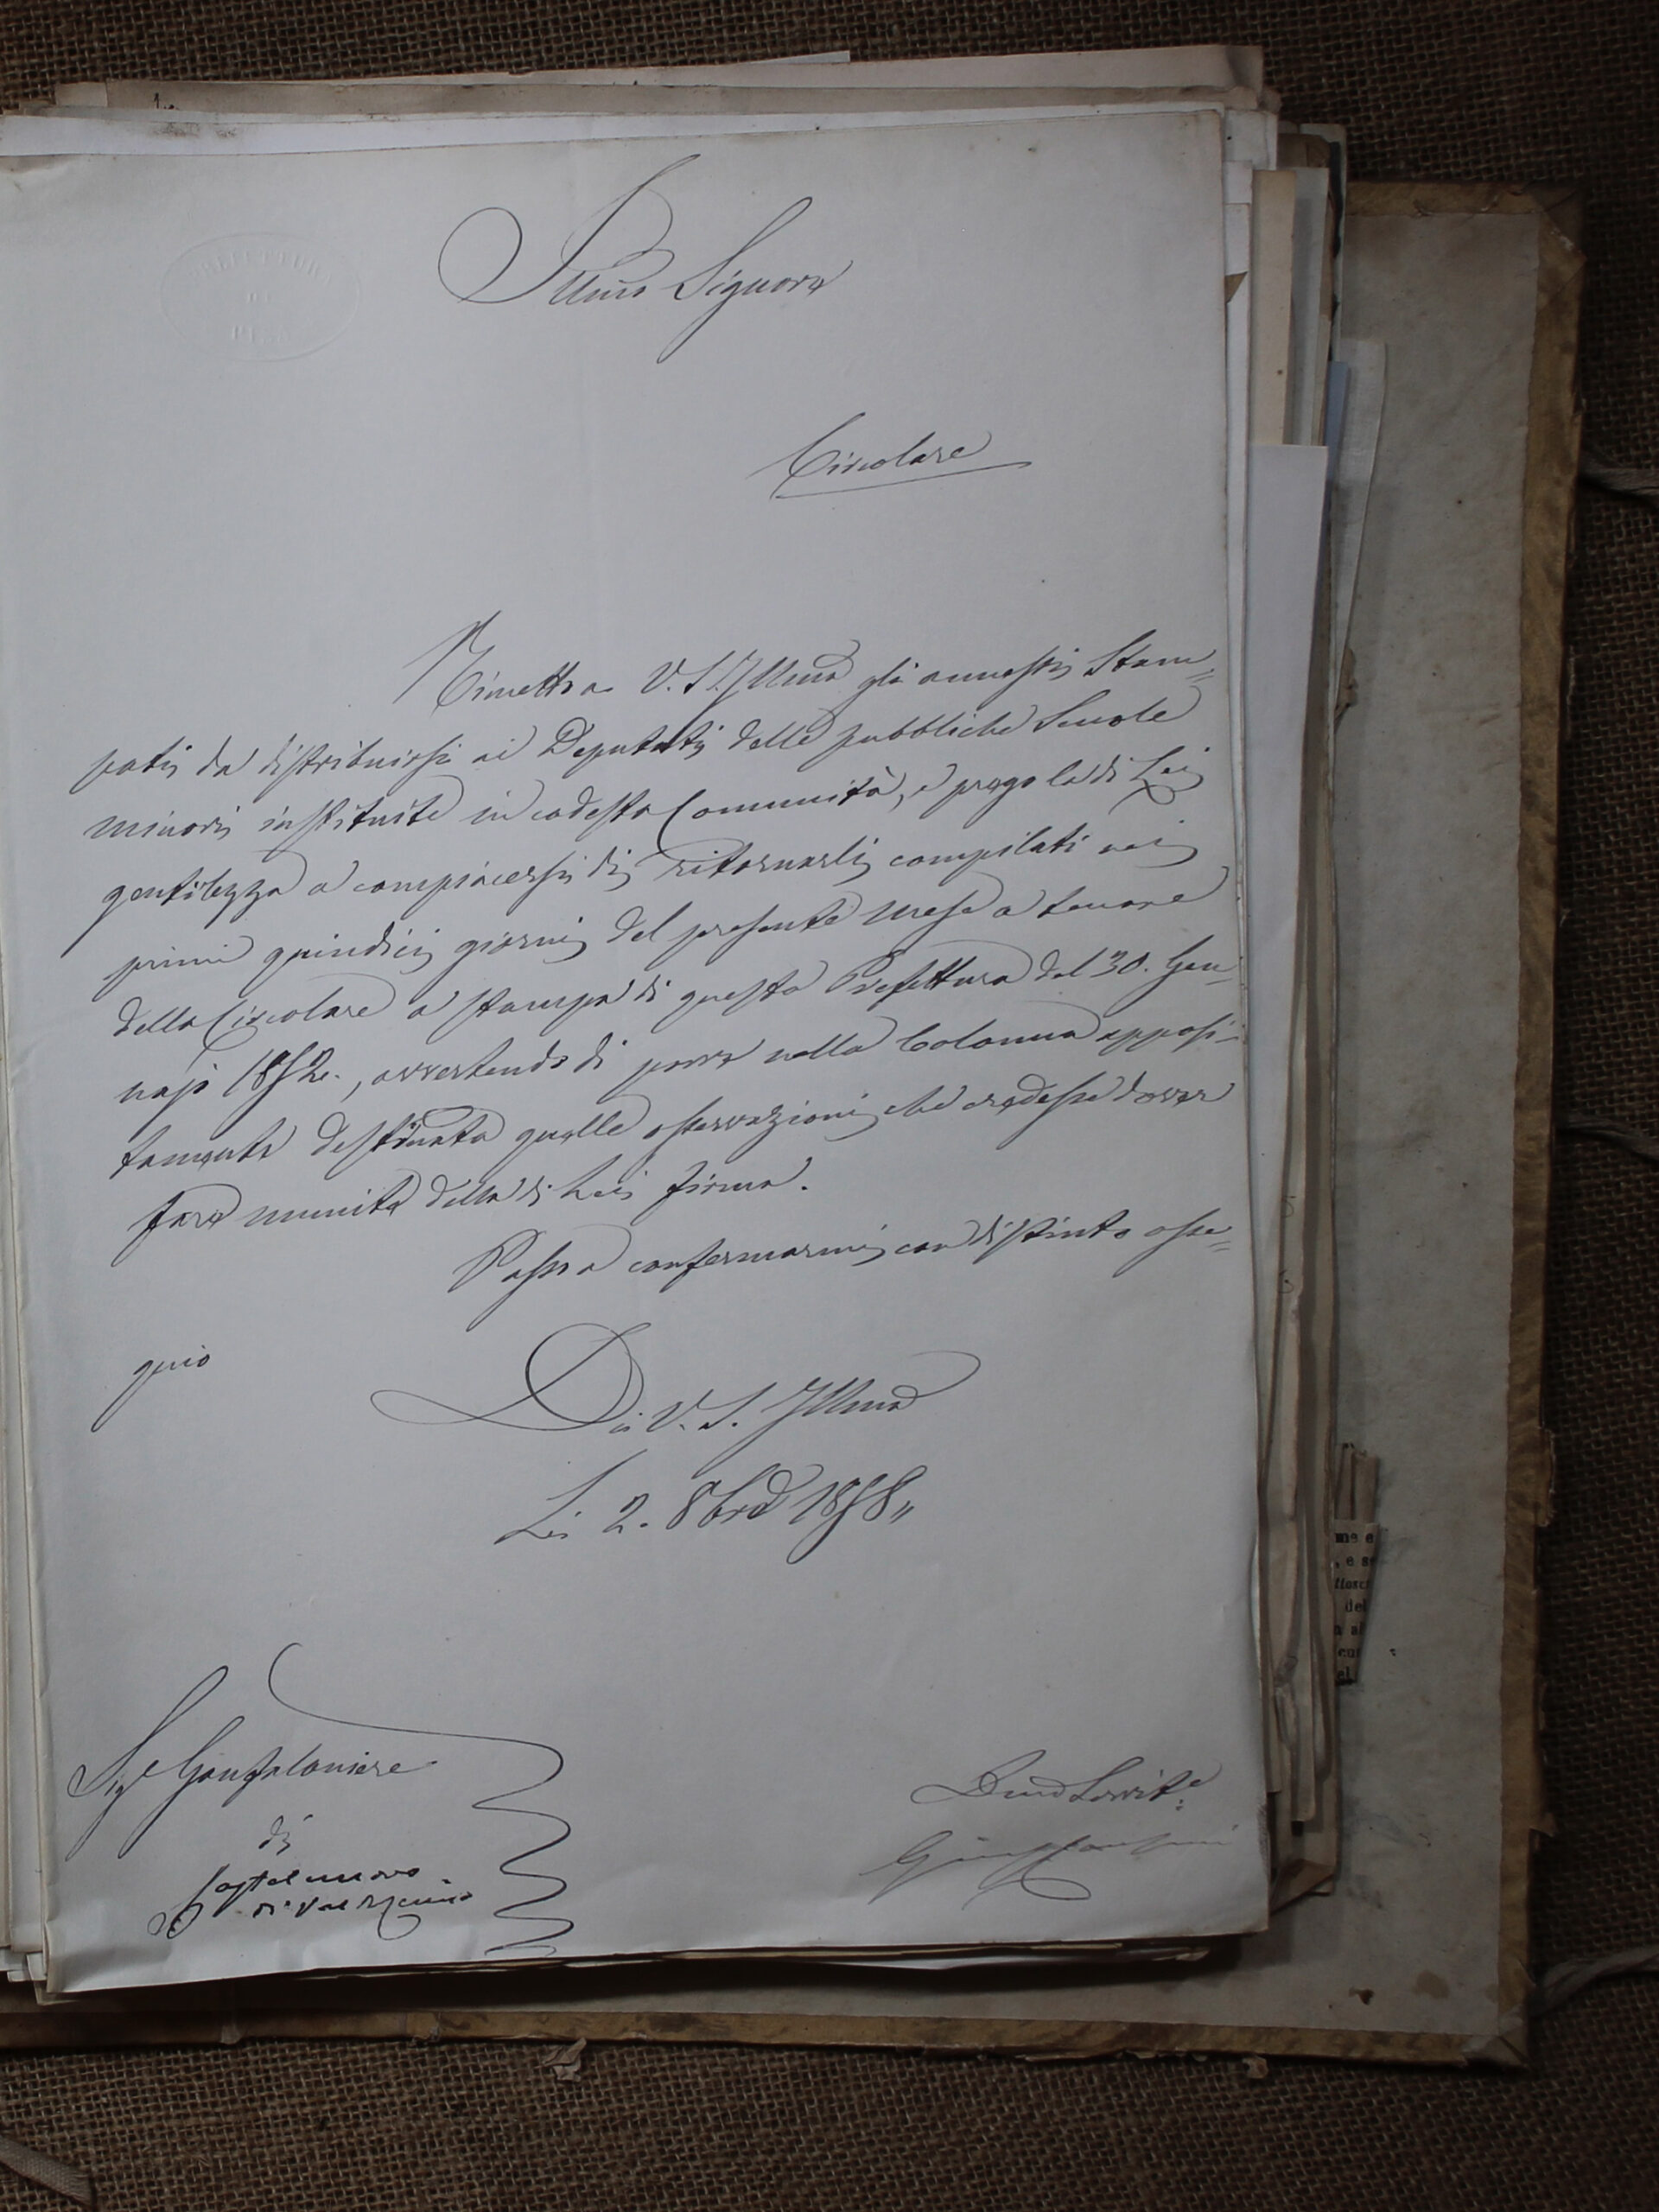 PREFETTURA
DI
PISA
Illmo Signore
Circolare
Rimetto a V. S. Illma gli annessi Stam=
pati da distribuirsi ai Deputati delle pubbliche Scuole
minori instituite in codesta Comunità, e prego la di Lei
gentilezza a compiacersi di ritornarli compilati nei
primi quindici giorni del presente mese a tenore
della Circolare a stampa di questa Prefettura del 30. Gen=
najo 1852., avvertendo di porre nella Colonna apposi=
tamente destinata quelle osservazioni che credesse dover
fare munite della di Lei firma.
Passo a confermarmi con distinto osse=
quio
Di V. S. Illma
Li 2. 8bre 1858,,
Sigr Gonfaloniere
di
Castelnuovo
di Val di Cecina
Devmo Servite.
me e
, e s
del
a al
con
el